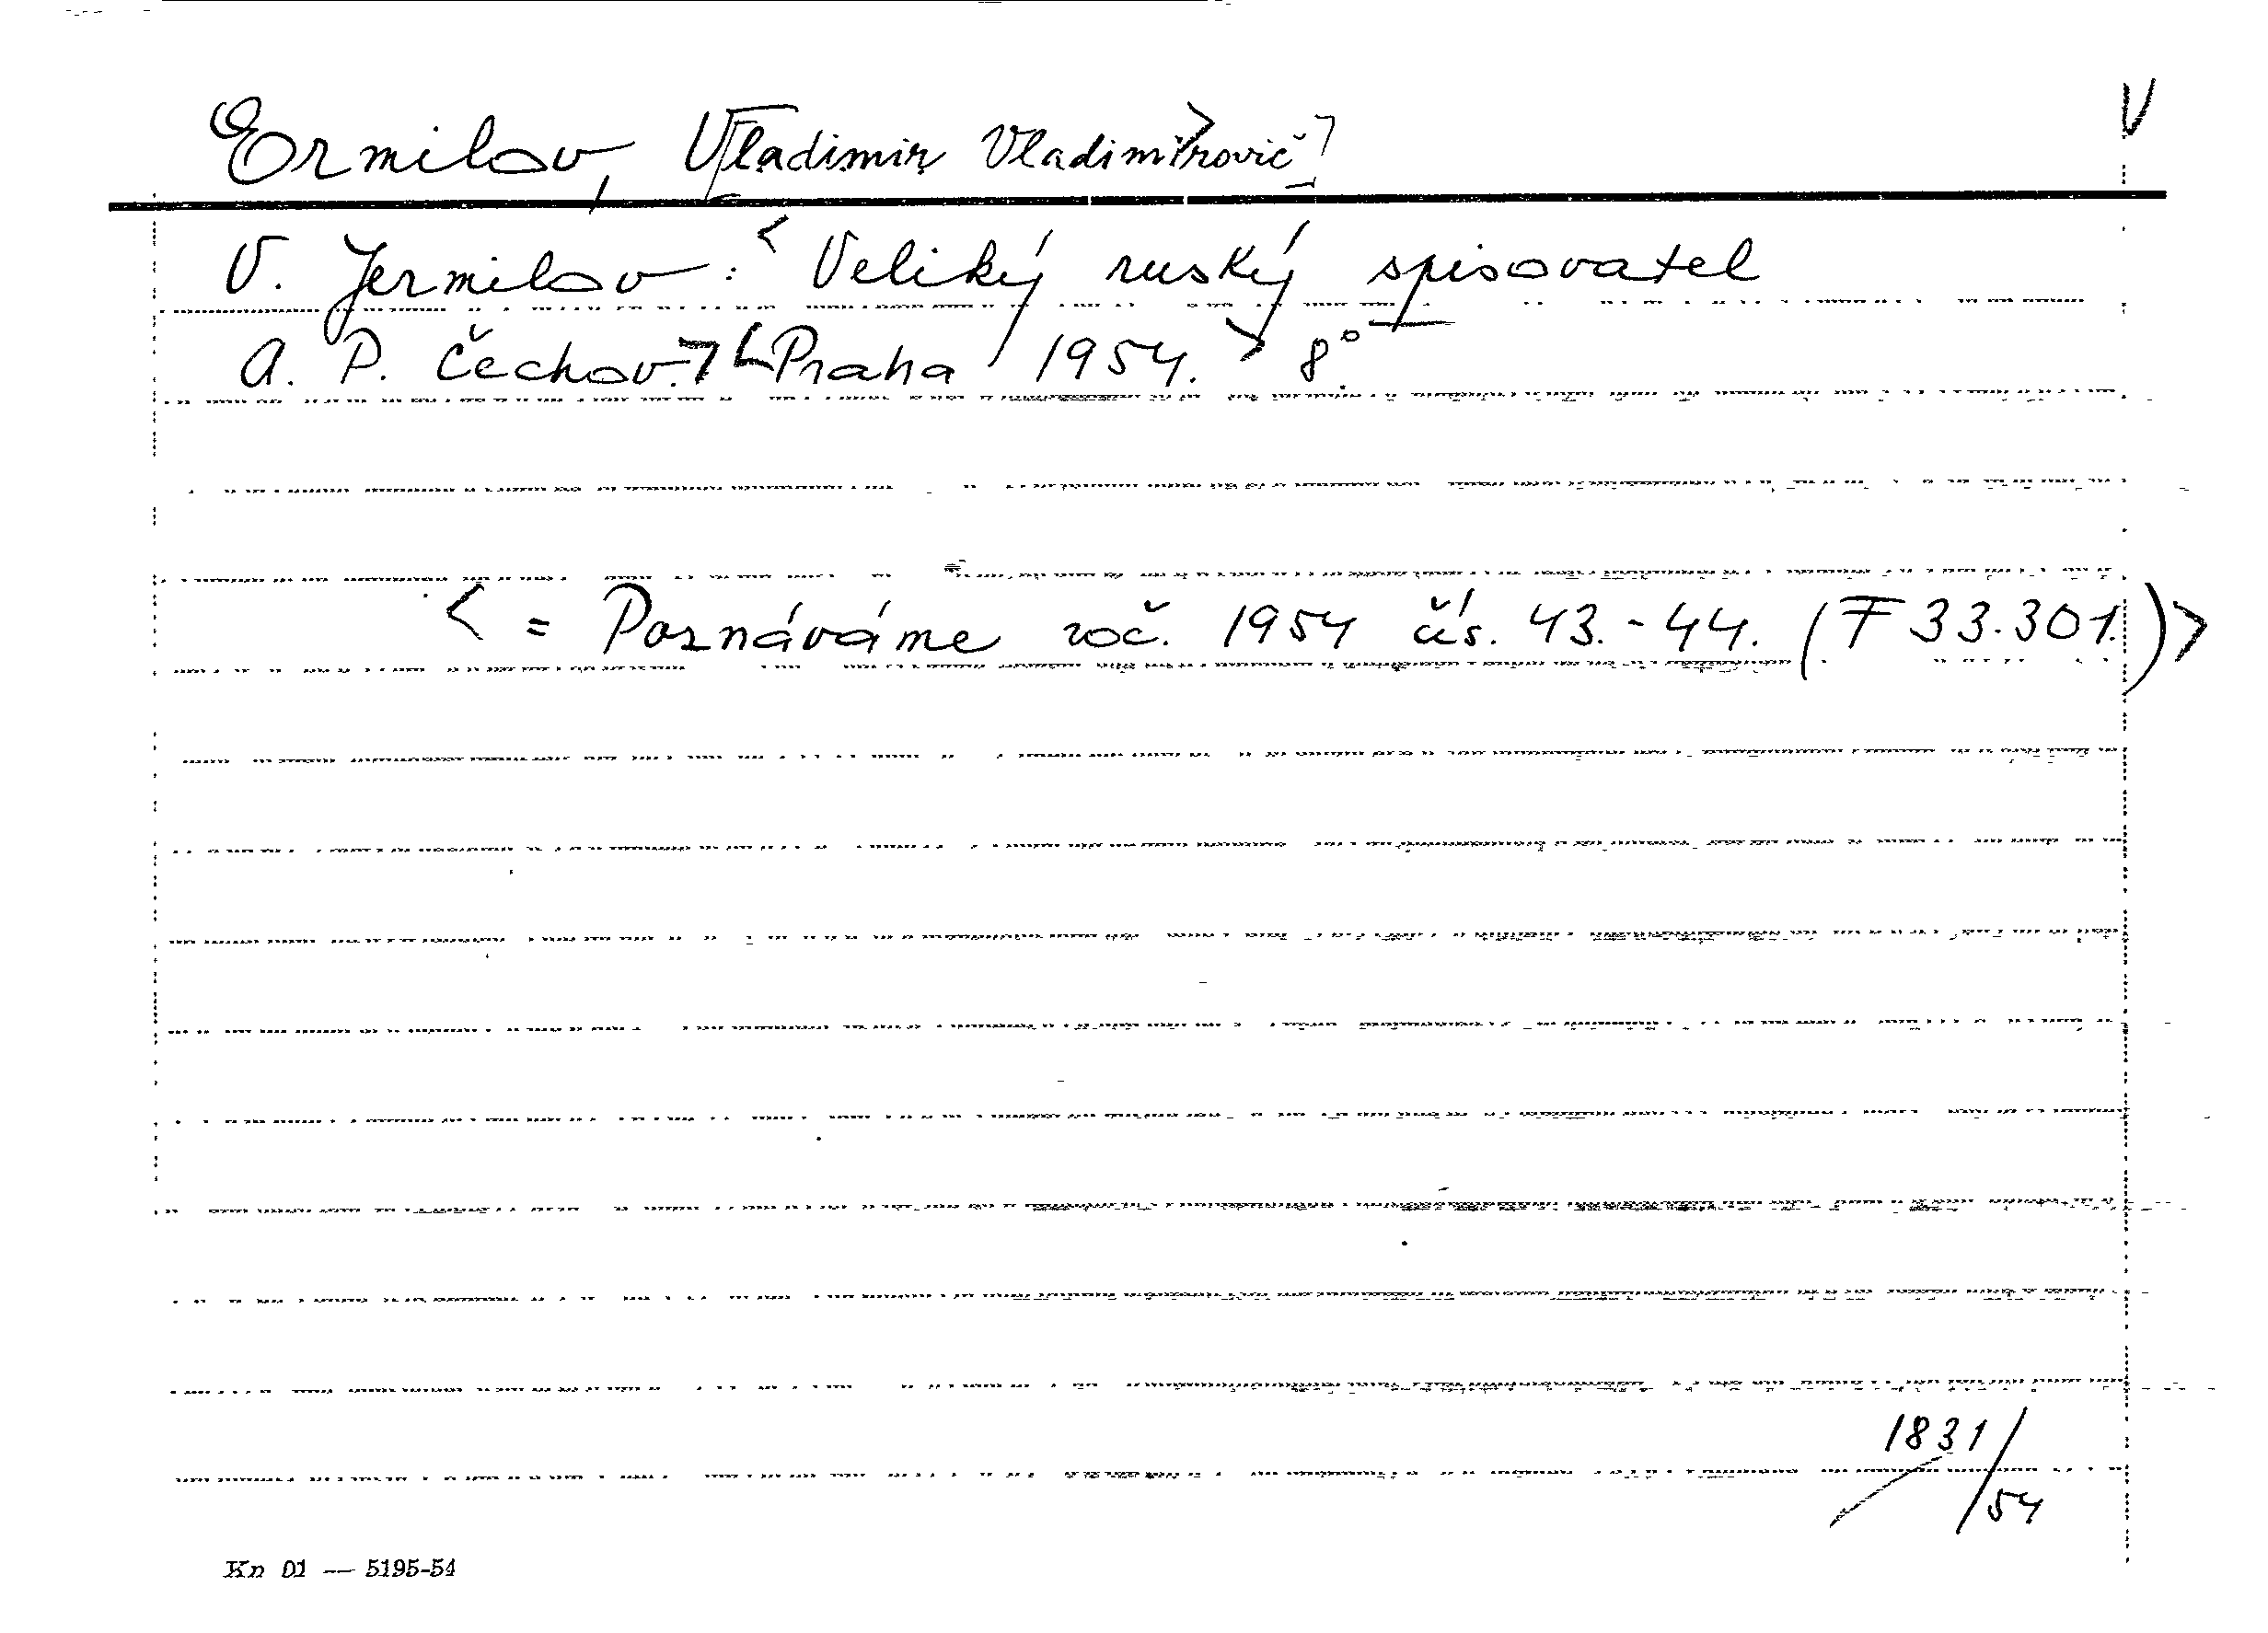 V
Ermilov, Vladimir Vladimirovič
V. Jermilov: < Veliký ruský spisovatel
A. P. Čechov. Praha 1954. > 8°.
< = Poznáváme roč. 1954 čís. 43.-44. (F 33.301.) >
1831/54
Kn 01 — 5195-54